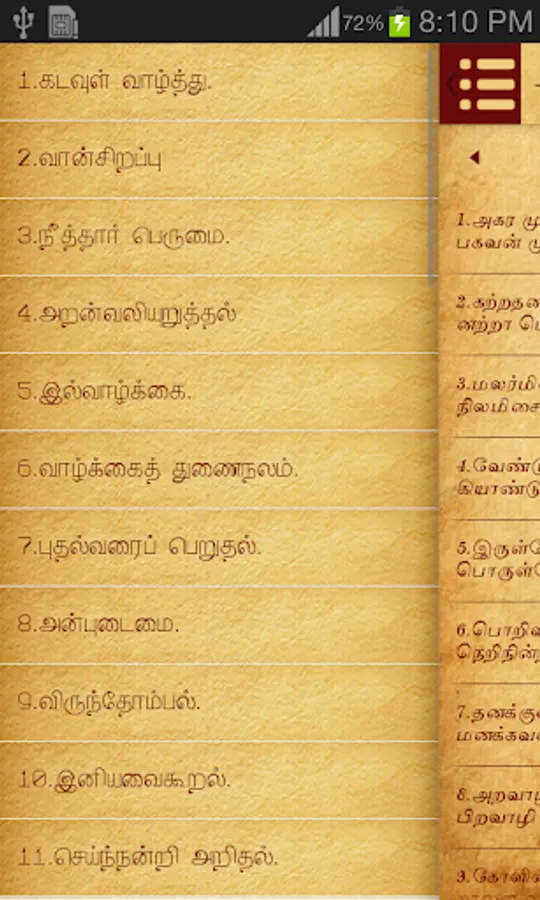 72% 8:10 PM
1.கடவுள் வாழ்த்து.
2.வான்சிறப்பு
3.நீத்தார் பெருமை.
4.அறன்வலியுறுத்தல்
5.இல்வாழ்க்கை.
6.வாழ்க்கைத் துணைநலம்.
7.புதல்வரைப் பெறுதல்.
8.அன்புடைமை.
9.விருந்தோம்பல்.
10.இனியவைகூறல்.
11.செய்ந்நன்றி அறிதல்.
1.அகர மு
பகவன் மு
2.கற்றதன
னற்றா
3.மலர்மி
நிலமிசை
4.வேண்டு
கியாண்டு
5.இருள்
பொருள்
6.பொறிவ
நெறிநின்ற
7.தனக்கு
மனக்கவ
8.அறவாழ
பிறவாழி
9.கோளில்